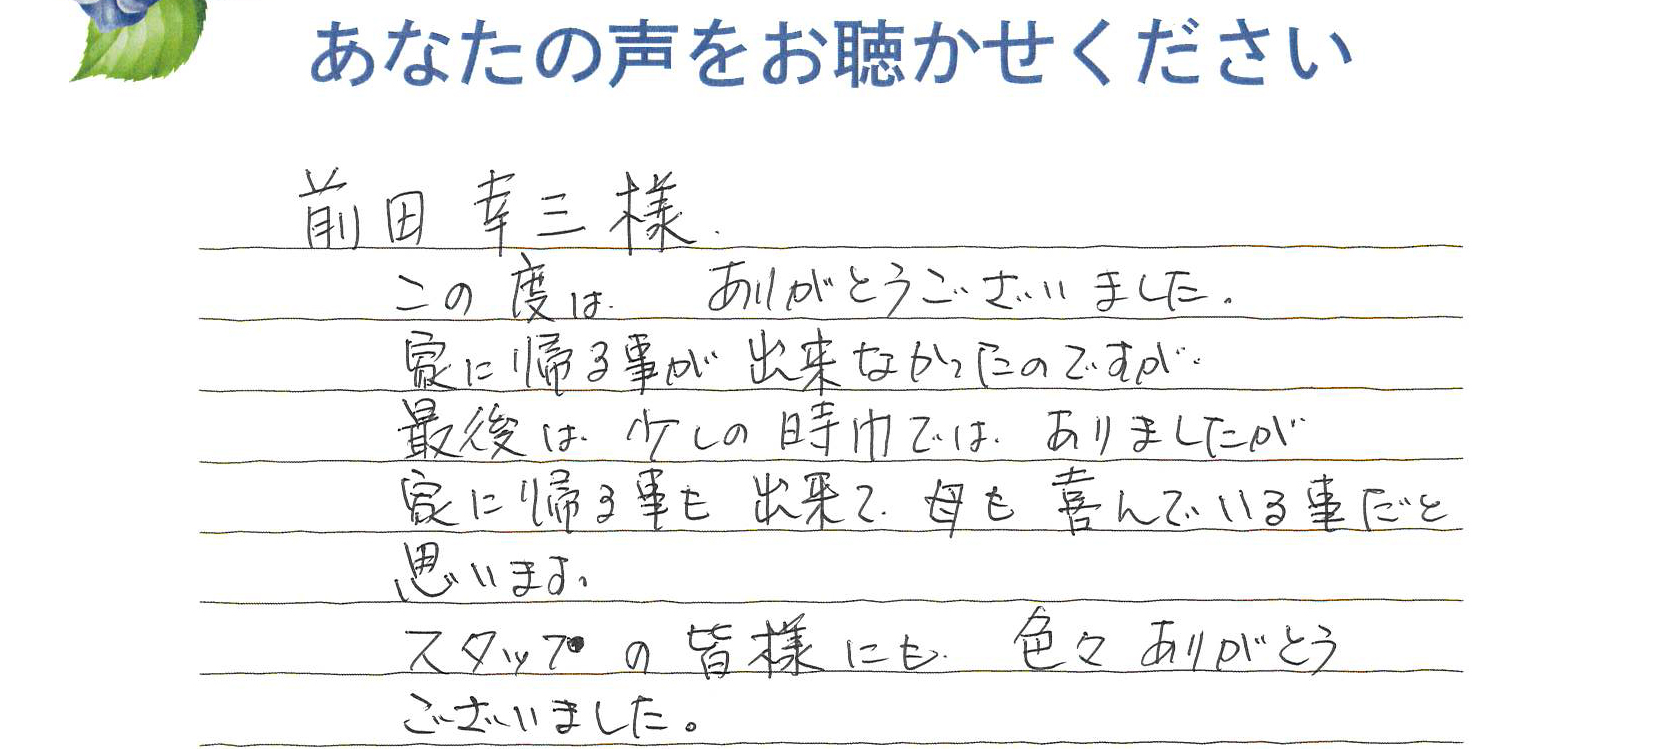 あなたの声をお聴かせください
前田 幸三様.
この度は. ありがとうございました.
家に帰る事が出来なかったのですが.
最後は. 少しの時巾では. ありましたが
家に帰る事も出来て. 母も喜んでいる事だと
思います。
スタップの皆様にも. 色々ありがとう
ございました。